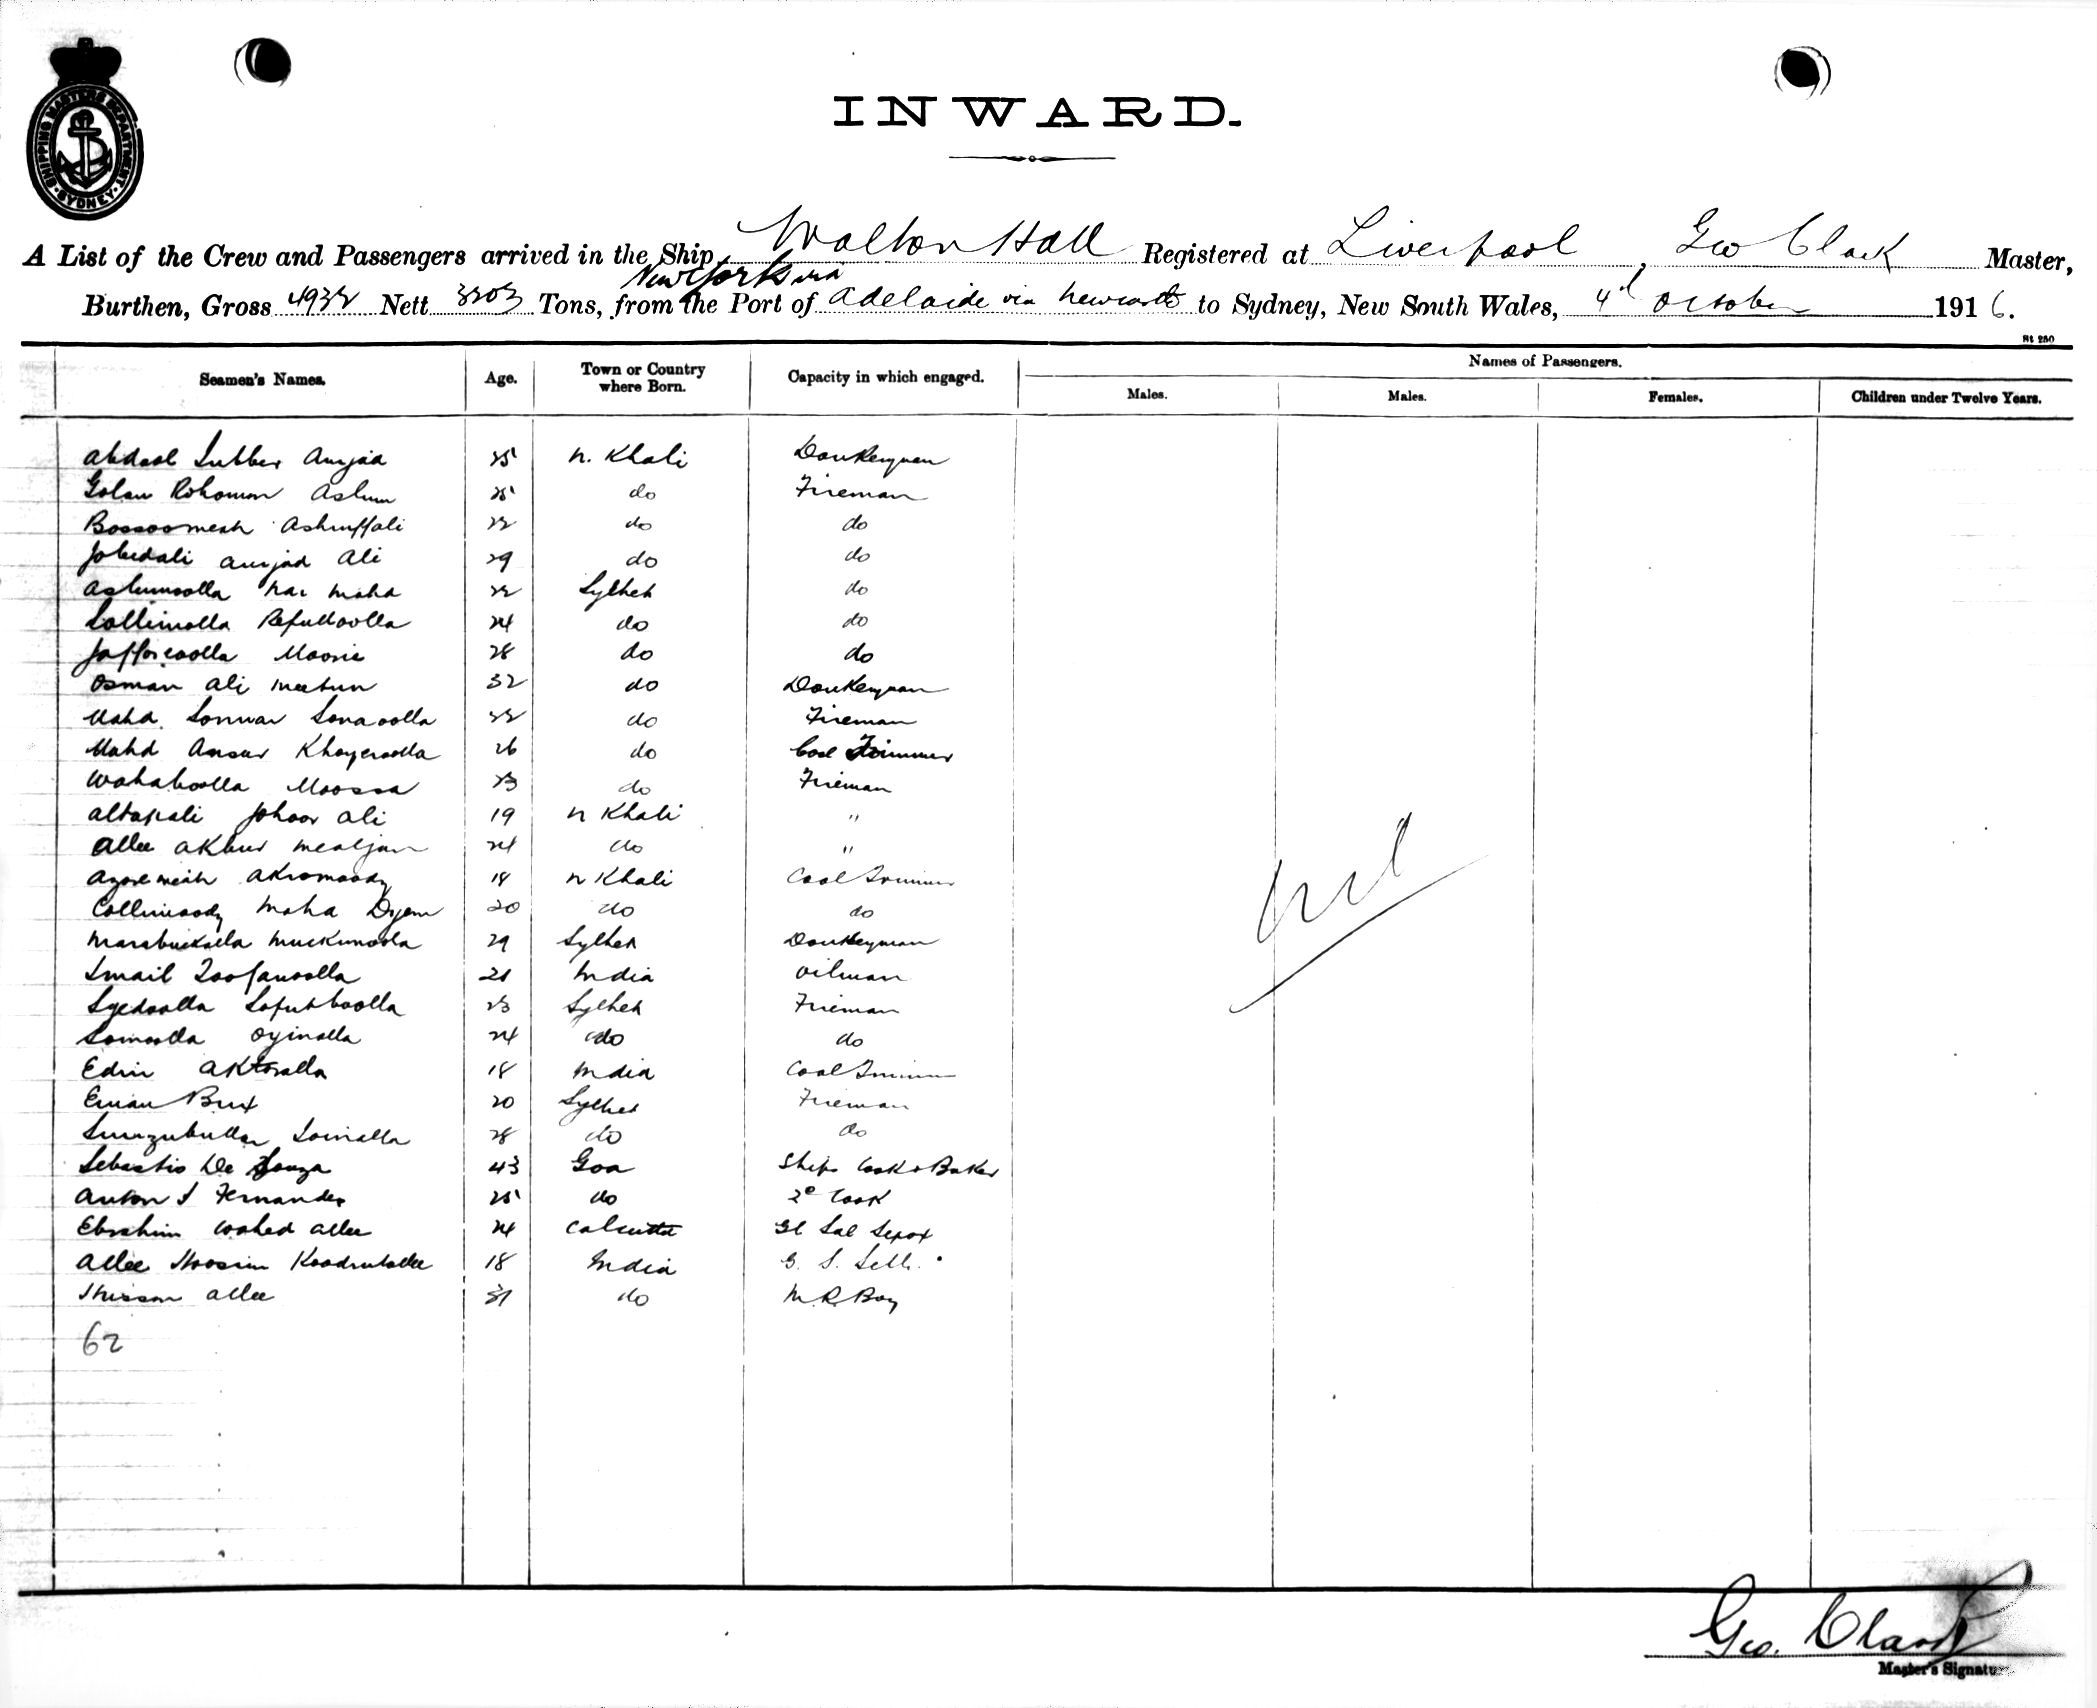 SHIPPING MASTERS DEPARTMENT SYDNEY
INWARD.
A List of the Crew and Passengers arrived in the Ship Walton Hall Registered at Liverpool, Geo Clark Master,
New York via
Burthen, Gross 4932 Nett 3203 Tons, from the Port of Adelaide via Newcastle to Sydney, New South Wales, 4th October 1916.
St 250
Seamen's Names. Age. Town or Country where Born. Capacity in which engaged. Names of Passengers.
Males. Males. Females. Children under Twelve Years.
Abdool Subber Amjad 25 N. Khali Donkeyman
Golam Rohoman Aslum 25 do Fireman
Bossoomeah Ashruffali 22 do do
Jobedali Amjad Ali 29 do do
22 Sylhet do
Sollimolla Refulloolla 24 do do
Jafforoolla Moosie 28 do do
Osman Ali 32 do Donkeyman
Mahd. Sonwar Sonaoolla 22 do Fireman
Mahd Ansur Khoyeroolla 26 do Coal Trimmer
Wahaboolla Moossa 23 do Fireman
Altapali Johoor Ali 19 N Khali "
Allee Akbur Mealjan 24 do "
Akromoody 18 N Khali Coal Trimmer
Collimoody Moha 20 do do
29 Sylhet Donkeyman
Ismail Toofanoolla 21 India Oilman
Syedoolla 23 Sylhet Fireman
Somoolla Oyinolla 24 do do
Edin Aktoralla 18 India Coal Trimmer
Eman Bux 20 Sylhet Fireman
Soinalla 28 do do
Sebastio De Souza 43 Goa Ships Cook & Baker
Anton S Fernandes 25 do 2º Cook
Ebrahim Wahed Allee 24 Calcutta Gl Sal
Allee Hoosein 18 India G. S.
Hissom Allee 31 do M.R. Boy
62
Nil
Geo. Clark
Master's Signature